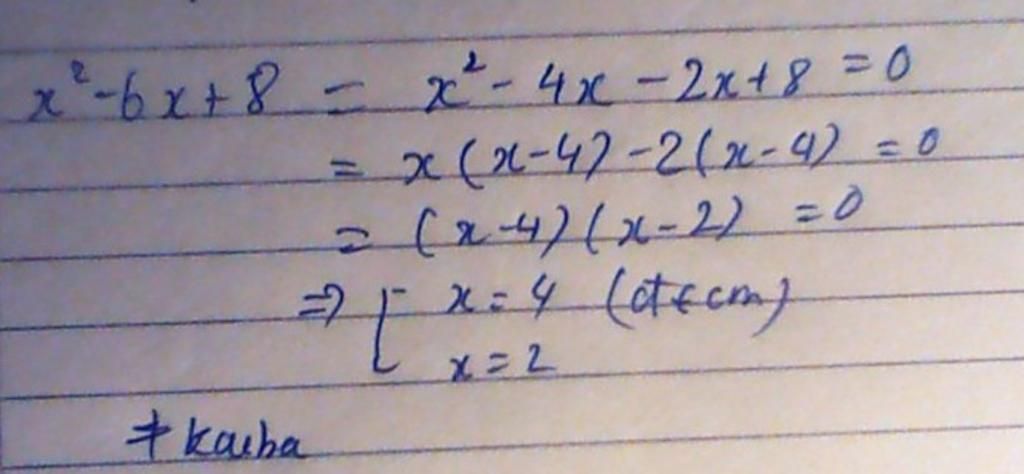 x² - 6x + 8 = x² - 4x - 2x + 8 = 0
= x(x-4) - 2(x-4) = 0
= (x-4)(x-2) = 0
⇒ [ x = 4 (đtcm)
x = 2
≠ kaiba